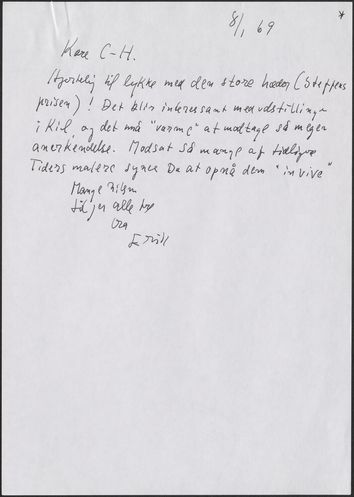 *
8/1 69
Kære C-H.
Hjertelig til lykke med den store hæder (Steffens
prisen)! Det blir interessant med udstillinge
i Kiel, og det må "varme" at modtage så megen
anerkendelse. Modsat så mange af tidligere
Tiders malere synes Du at opnå dem "in vive"
Mange hilsn
til jer alle tre
fra